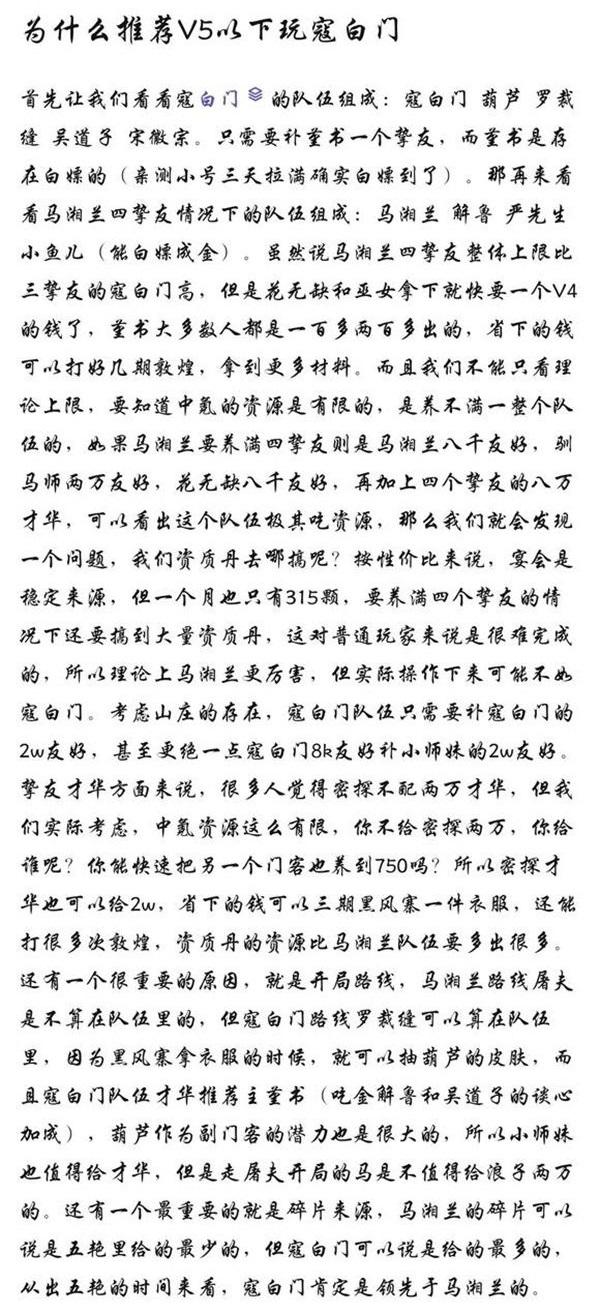 为什么推荐V5以下玩寇白门
首先让我们看看寇白门的队伍组成：寇白门 葫芦 罗裁
缝 吴道子 宋徽宗。只需要补董书一个挚友，而董书是存
在白嫖的（亲测小号三天拉满确实白嫖到了）。那再来看
看马湘兰四挚友情况下的队伍组成：马湘兰 解鲁 严先生
小鱼儿（能白嫖成金）。虽然说马湘兰四挚友整体上限比
三挚友的寇白门高，但是花无缺和巫女拿下就快要一个V4
的钱了，董书大多数人都是一百多两百多出的，省下的钱
可以打好几期敦煌，拿到更多材料。而且我们不能只看理
论上限，要知道中氪的资源是有限的，是养不满一整个队
伍的，如果马湘兰要养满四挚友则是马湘兰八千友好，驯
马师两万友好，花无缺八千友好，再加上四个挚友的八万
才华，可以看出这个队伍极其吃资源，那么我们就会发现
一个问题，我们资质丹去哪搞呢？按性价比来说，宴会是
稳定来源，但一个月也只有315颗，要养满四个挚友的情
况下还要搞到大量资质丹，这对普通玩家来说是很难完成
的，所以理论上马湘兰更厉害，但实际操作下来可能不如
寇白门。考虑山庄的存在，寇白门队伍只需要补寇白门的
2w友好，甚至更绝一点寇白门8k友好补小师妹的2w友好。
挚友才华方面来说，很多人觉得密探不配两万才华，但我
们实际考虑，中氪资源这么有限，你不给密探两万，你给
谁呢？你能快速把另一个门客也养到750吗？所以密探才
华也可以给2w，省下的钱可以三期黑风寨一件衣服，还能
打很多次敦煌，资质丹的资源比马湘兰队伍要多出很多。
还有一个很重要的原因，就是开局路线，马湘兰路线屠夫
是不算在队伍里的，但寇白门路线罗裁缝可以算在队伍
里，因为黑风寨拿衣服的时候，就可以抽葫芦的皮肤，而
且寇白门队伍才华推荐主董书（吃金解鲁和吴道子的谈心
加成），葫芦作为副门客的潜力也是很大的，所以小师妹
也值得给才华，但是走屠夫开局的马是不值得给浪子两万
的。还有一个最重要的就是碎片来源，马湘兰的碎片可以
说是五艳里给的最少的，但寇白门可以说是给的最多的，
从出五艳的时间来看，寇白门肯定是领先于马湘兰的。